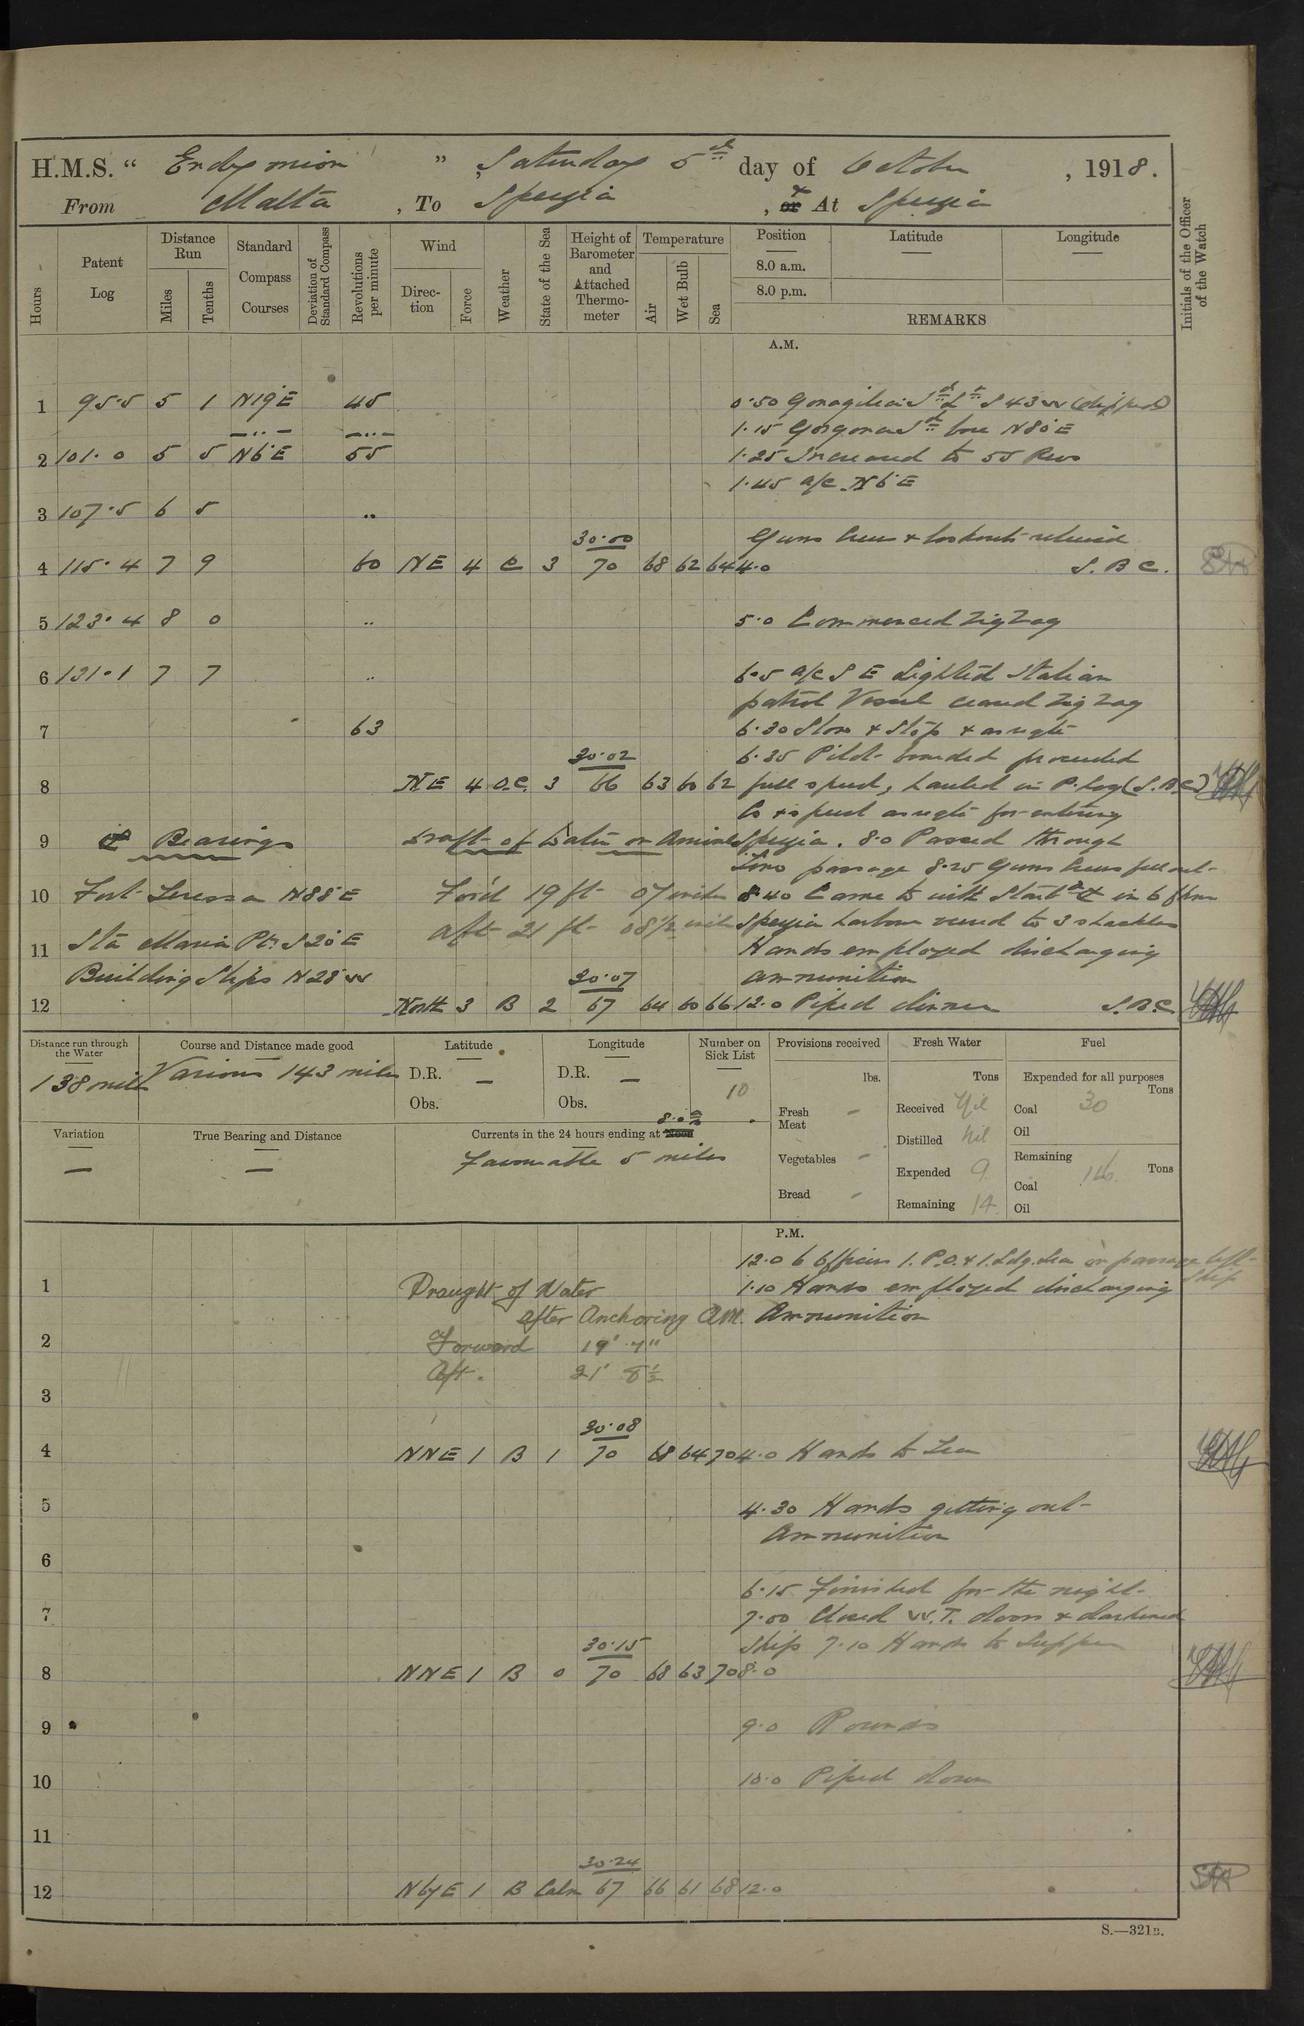 H.M.S. " Endymion ", Saturday 5th day of October, 1918.
From Malta, To Spezia, or + At Spezia
Hours
Patent Log
Distance Run
Miles
Tenths
Standard Compass Courses
Deviation of Standard Compass
Revolutions per minute
Wind
Direction
Force
Weather
State of the Sea
Height of Barometer and Attached Thermometer
Temperature
Air
Wet Bulb
Sea
Position
8.0 a.m.
8.0 p.m.
Latitude
—
Longitude
—
REMARKS
Initials of the Officer of the Watch
A.M.
1 95.5 5 1 N19°E 45 0.50 S43W (dipped)
1.15 Gorgona bore N80°E
2 101.0 5 5 N6°E 55 1.25 Increased to 55 Revs
1.45 a/c N6°E
3 107.5 6 5 "
Guns Crews & lookouts relieved
30.00
4 115.4 7 9 60 NE 4 C 3 70 68 62 64 4.0 S.B.C.
5 123.4 8 0 " 5.0 Commenced Zig Zag
6 131.1 7 7 " 6.5 a/c S E Sighted Italian
patrol Vessel ceased Zig Zag
7 63 6.30 Slow & Stop & as reqte
30.02 6.35 Pilot boarded proceeded
8 NE 4 O.C. 3 66 63 60 62 full speed, hauled in P. Log (S.B.C)
Co & speed as reqte for entering
9 Bearings Draft of Water on Arrival Spezia. 8.0 Passed through
passage 8.25 Guns Crews fell out
10 Fort Teressa N88°E For'd 19 ft 07 inches 8.40 Came to with Starbd in 6 fms
Aft 21 ft 08½ inch Spezia harbour veered to 3 shackles
11 Sta Maria Pt. S20°E Hands employed discharging
Building Slips N28°W 30.07 ammunition
12 North 3 B 2 67 64 60 66 12.0 Piped dinner S.B.C.
Distance run through the Water
138 miles
Course and Distance made good
Various 143 miles
Latitude
D.R. —
Obs.
Longitude
D.R. —
Obs.
Number on Sick List
10
Provisions received
lbs.
Fresh Meat -
Vegetables -
Bread -
Fresh Water
Tons
Received Nil
Distilled Nil
Expended 9
Remaining 14
Fuel
Expended for all purposes
Tons
Coal 30
Oil
Remaining
Tons
Coal
Oil
Variation
—
True Bearing and Distance
—
Currents in the 24 hours ending at Noon 8.0
Favourable 5 miles
P.M.
12.0 6 Officers 1. P.O. & 1. Ldg. Sea on passage left ship
1 Draught of Water 1.10 Hands employed discharging
after Anchoring AM. Ammunition
2 Forward 19' 7"
Aft. 21' 8½
3
30.08
4 NNE 1 B 1 70 68 64 70 4.0 Hands to Tea
5 4.30 Hands getting out
Ammunition
6
6.15 Finished for the night
7 7.00 Closed W.T. doors & darkened
30.15 Ship 7.10 Hands to Supper
8 NNE 1 B 0 70 68 63 70 8.0
9 9.0 Rounds
10 10.0 Piped down
11
30.24
12 N by E 1 B Calm 67 66 61 68 12.0
S.—321B.